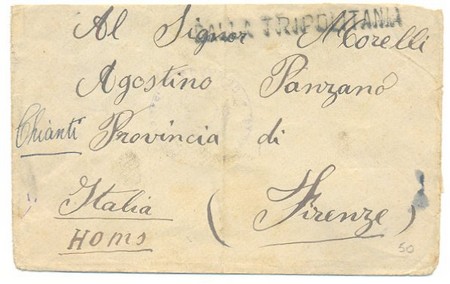 DALLA TRIPOLITANIA
Al Signor Morelli
Agostino Panzano
Chianti Provincia di
Italia (Firenze)
HOMS
50